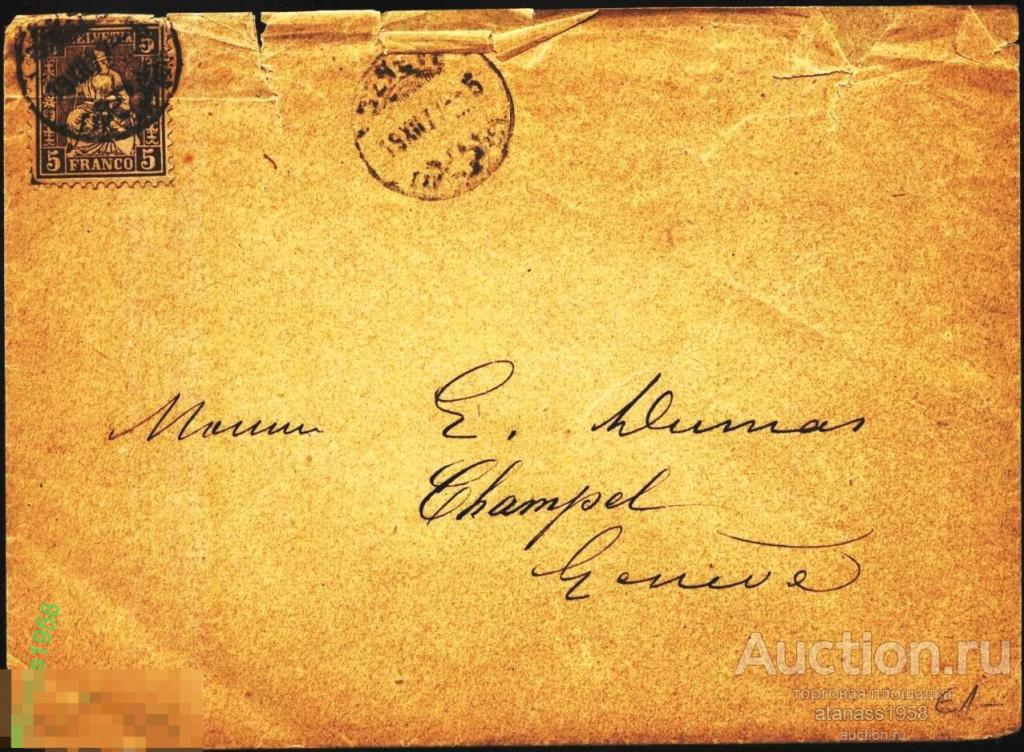 HELVETIA
5 5
5 FRANCO 5
19 XII 7
E. Dumas
Champel
Genève
91958
Auction.ru
торговая площадка
atanass1958
auction.ru